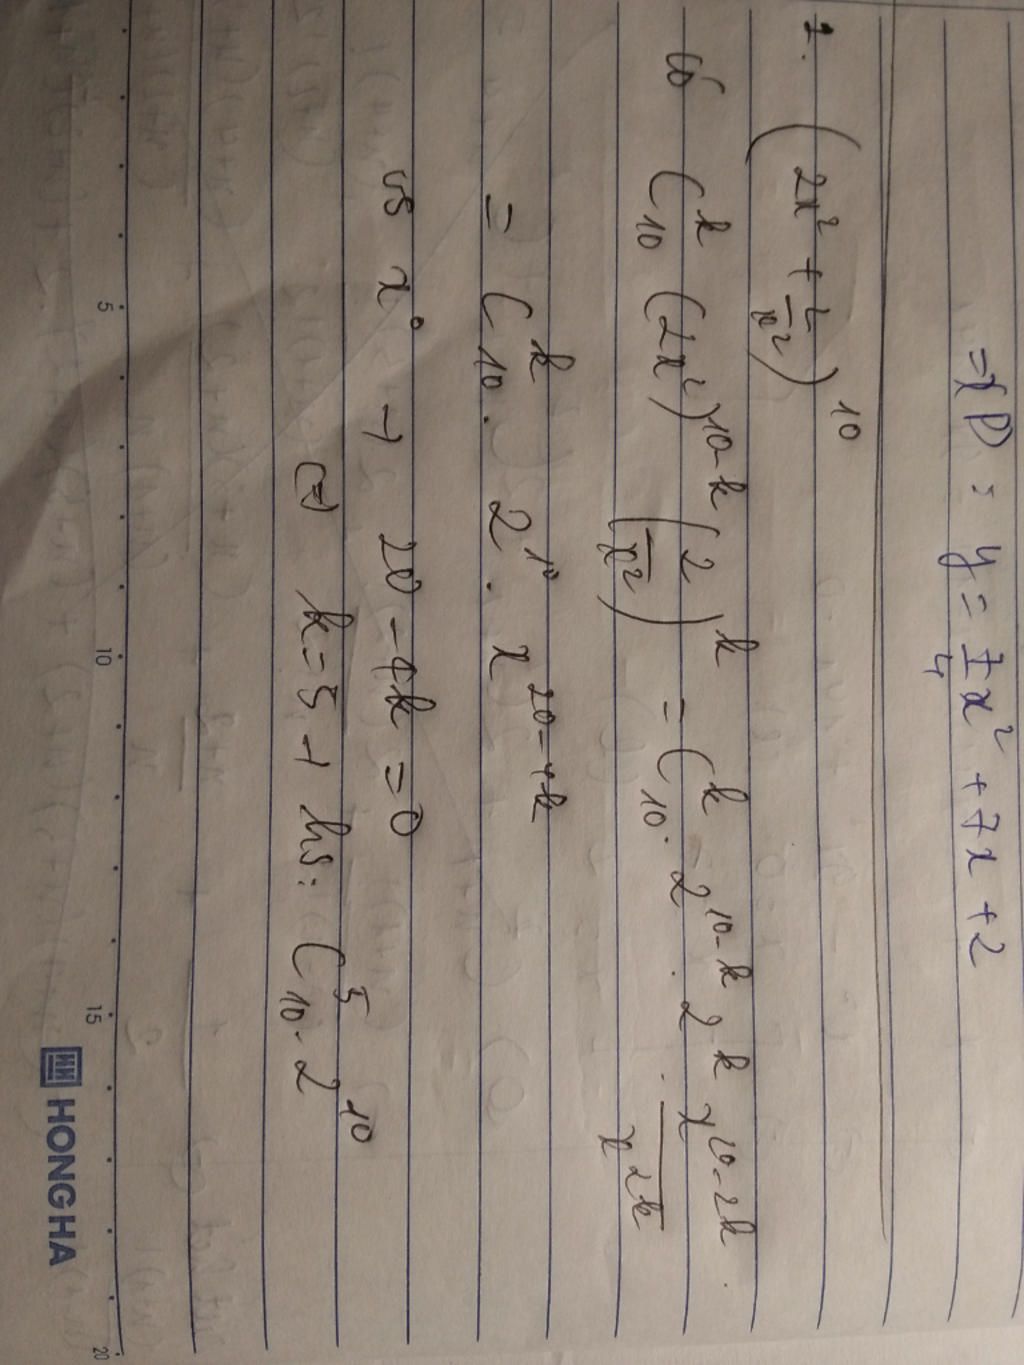 => (P) : y = 7/4 x² + 7x + 2
7. (2x² + 2/x²)¹⁰
Có C₁₀ᵏ (2x²)¹⁰⁻ᵏ (2/x²)ᵏ = C₁₀ᵏ . 2¹⁰⁻ᵏ . 2ᵏ . x²⁰⁻²ᵏ / x²ᵏ
= C₁₀ᵏ . 2¹⁰ . x²⁰⁻⁴ᵏ
vs x⁰ → 20 - 4k = 0
<=> k = 5 → hs: C₁₀⁵ . 2¹⁰
5 10 15 20
HONG HA